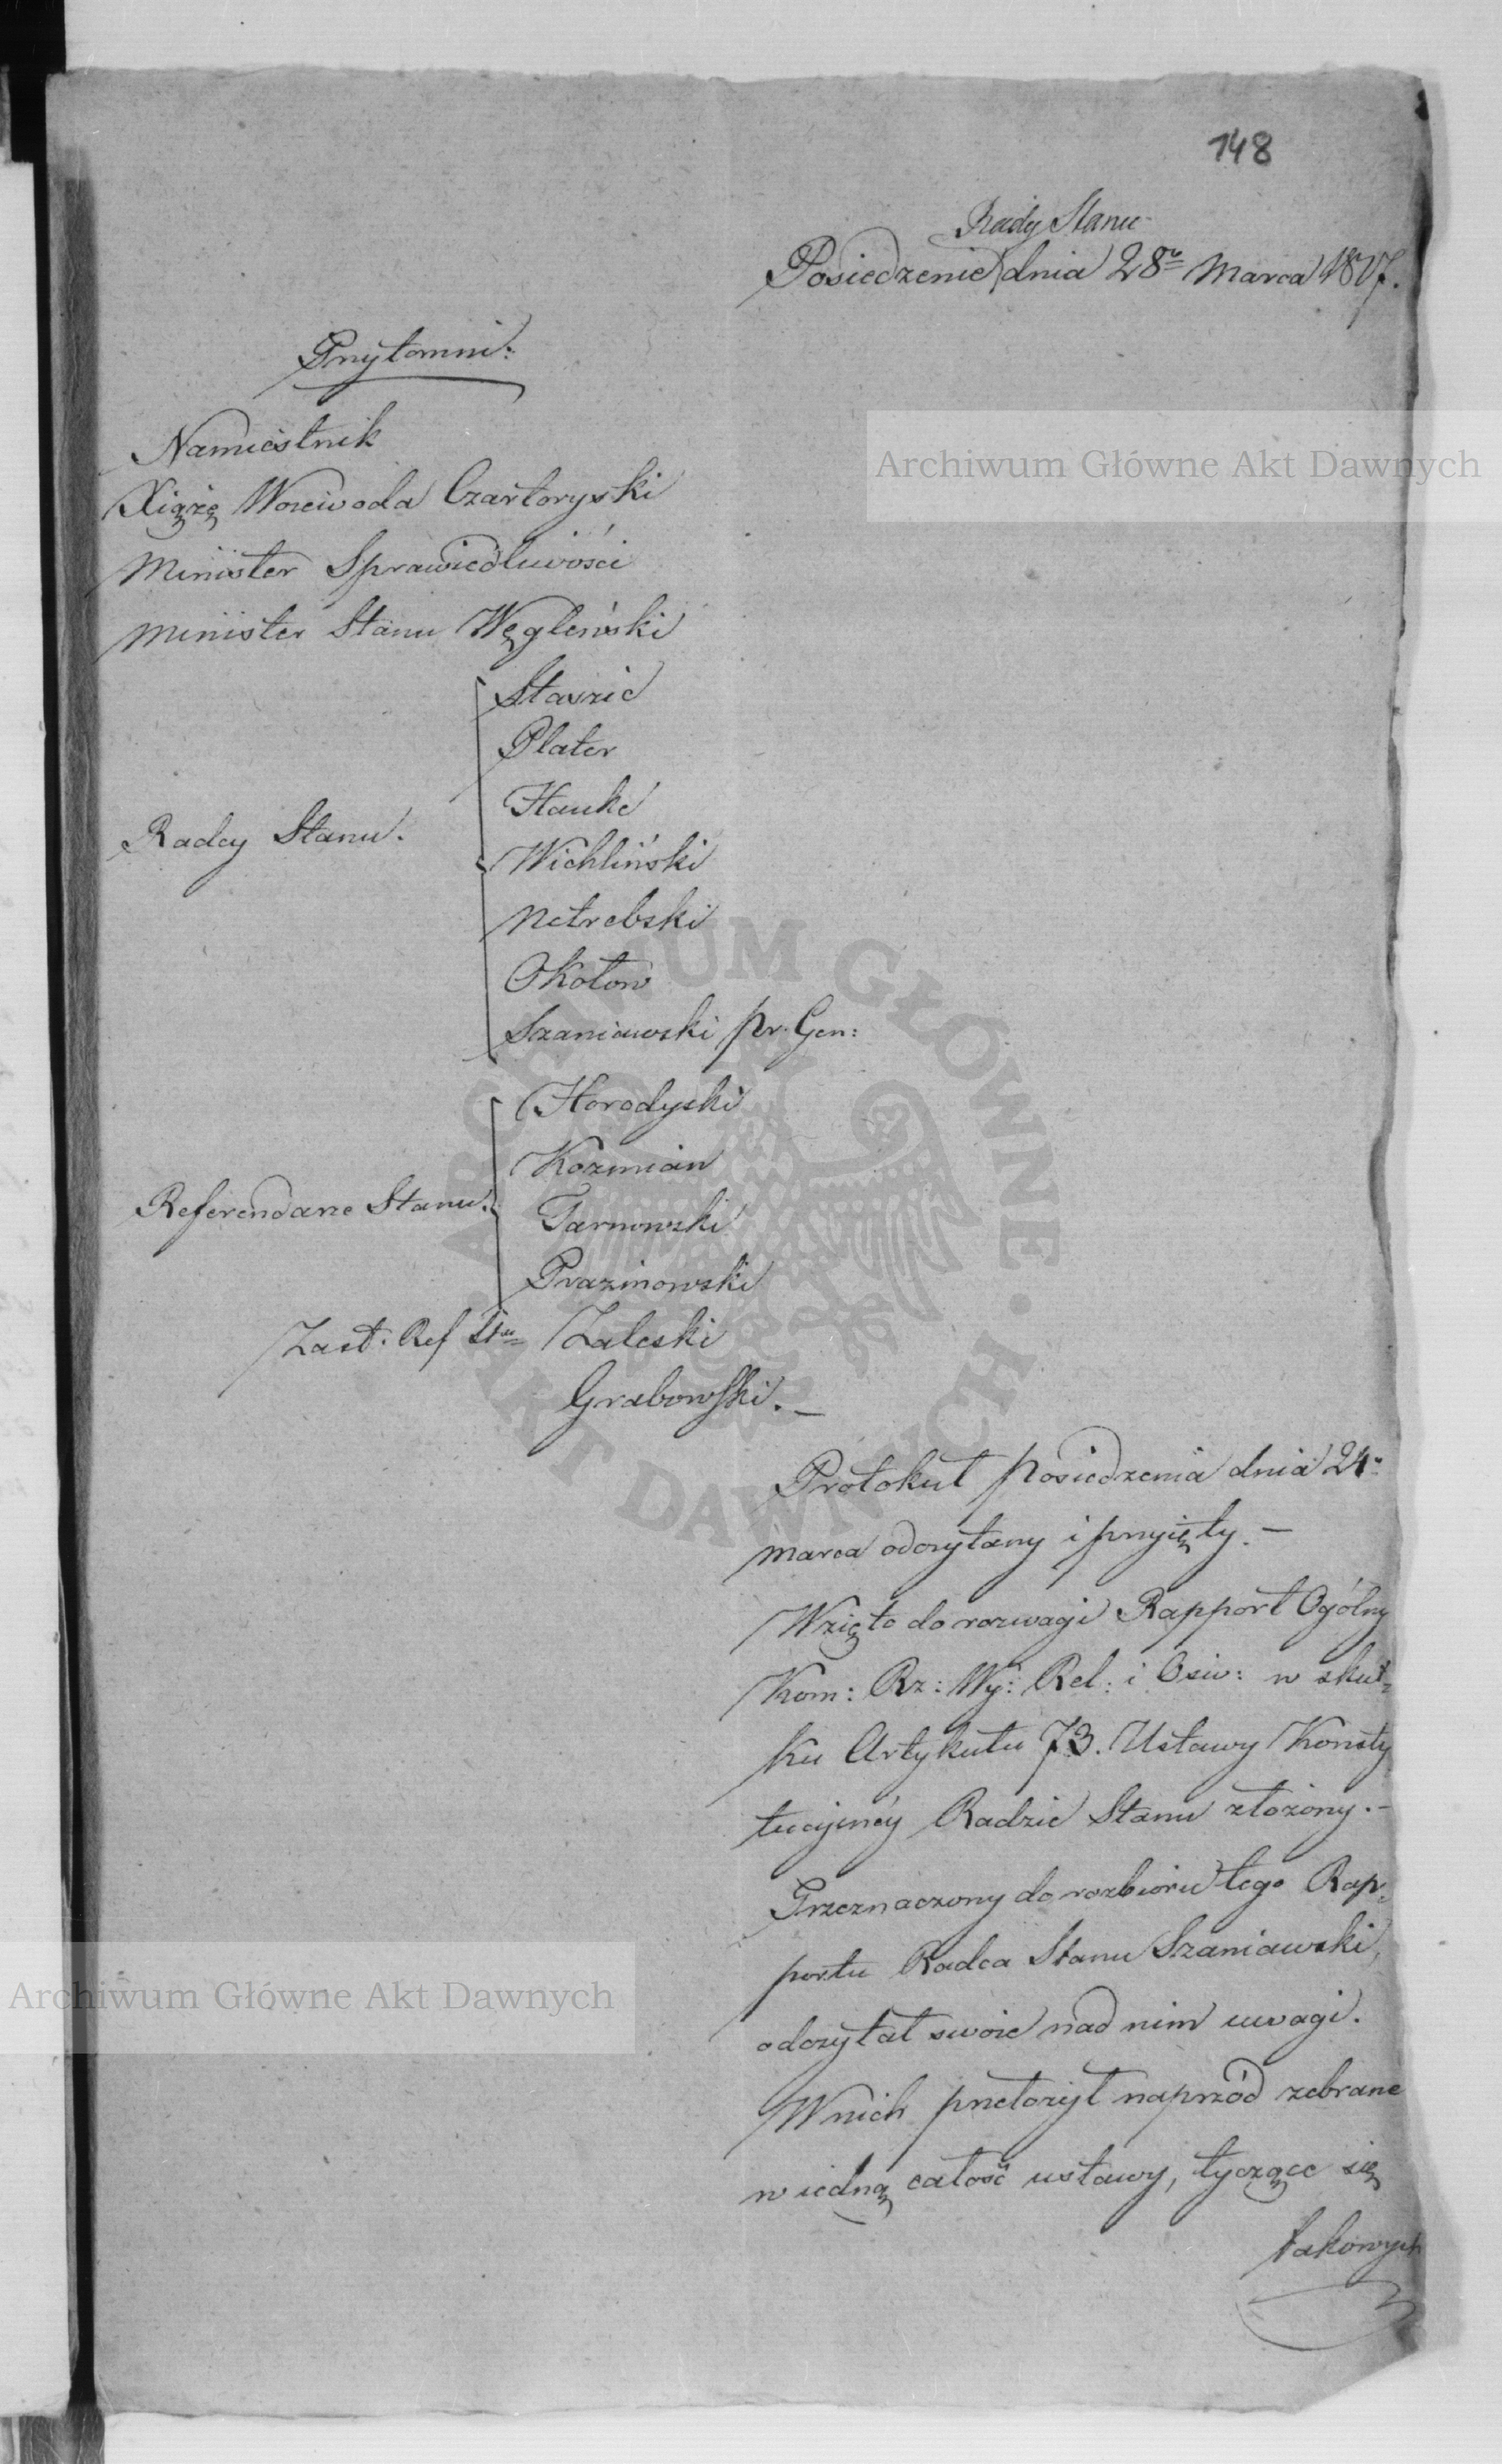 148
Rady Stanu
Posiedzenie dnia 28º Marca 1817.
Przytomni:
Namiestnik
Xiążę Woiewoda Czartoryski
Minister Sprawiedliwości
Minister Stanu Węgleński
Radcy Stanu.
Staszic
Plater
Hauke
Wichliński
Netrebski
Okołow
Szaniawski pr. Gen:
Referendarze Stanu.
Horodyski
Kozmian
Tarnowski
Prazmowski
Zast: Ref Stu Zaleski
Grabowski. —
Protokuł posiedzenia dnia 24º
marca odczytany i przyięty. —
Wzięto do rozwagi Rapport Ogólny
Kom: Rz: Wy: Rel: i Ośw: w skut=
ku Artykułu 73. Ustawy Konsty
tucyinéy Radzie Stanu złożony. —
Przeznaczony do rozbioru tego Rap=
portu Radca Stanu Szaniawski,
odczytał swoie nad nim uwagi.
W nich przełożył naprzód zebrane
w iedną całość ustawy, tyczące się
takowych
Archiwum Główne Akt Dawnych
Archiwum Główne Akt Dawnych
ARCHIWUM GŁÓWNE · AKT DAWNYCH ·